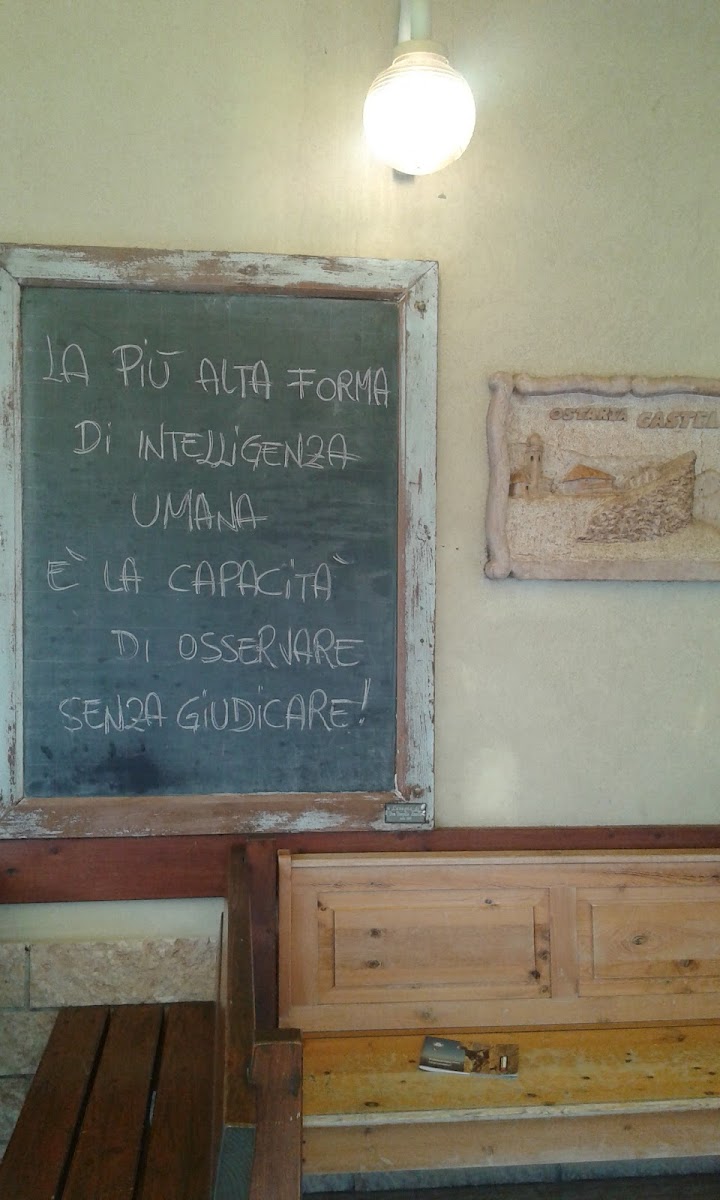 LA PIÙ ALTA FORMA
Di INTELLIGENZA
UMANA
E' LA CAPACITA'
DI OSSERVARE
SENZA GIUDICARE!
OSTARIA CASTEL